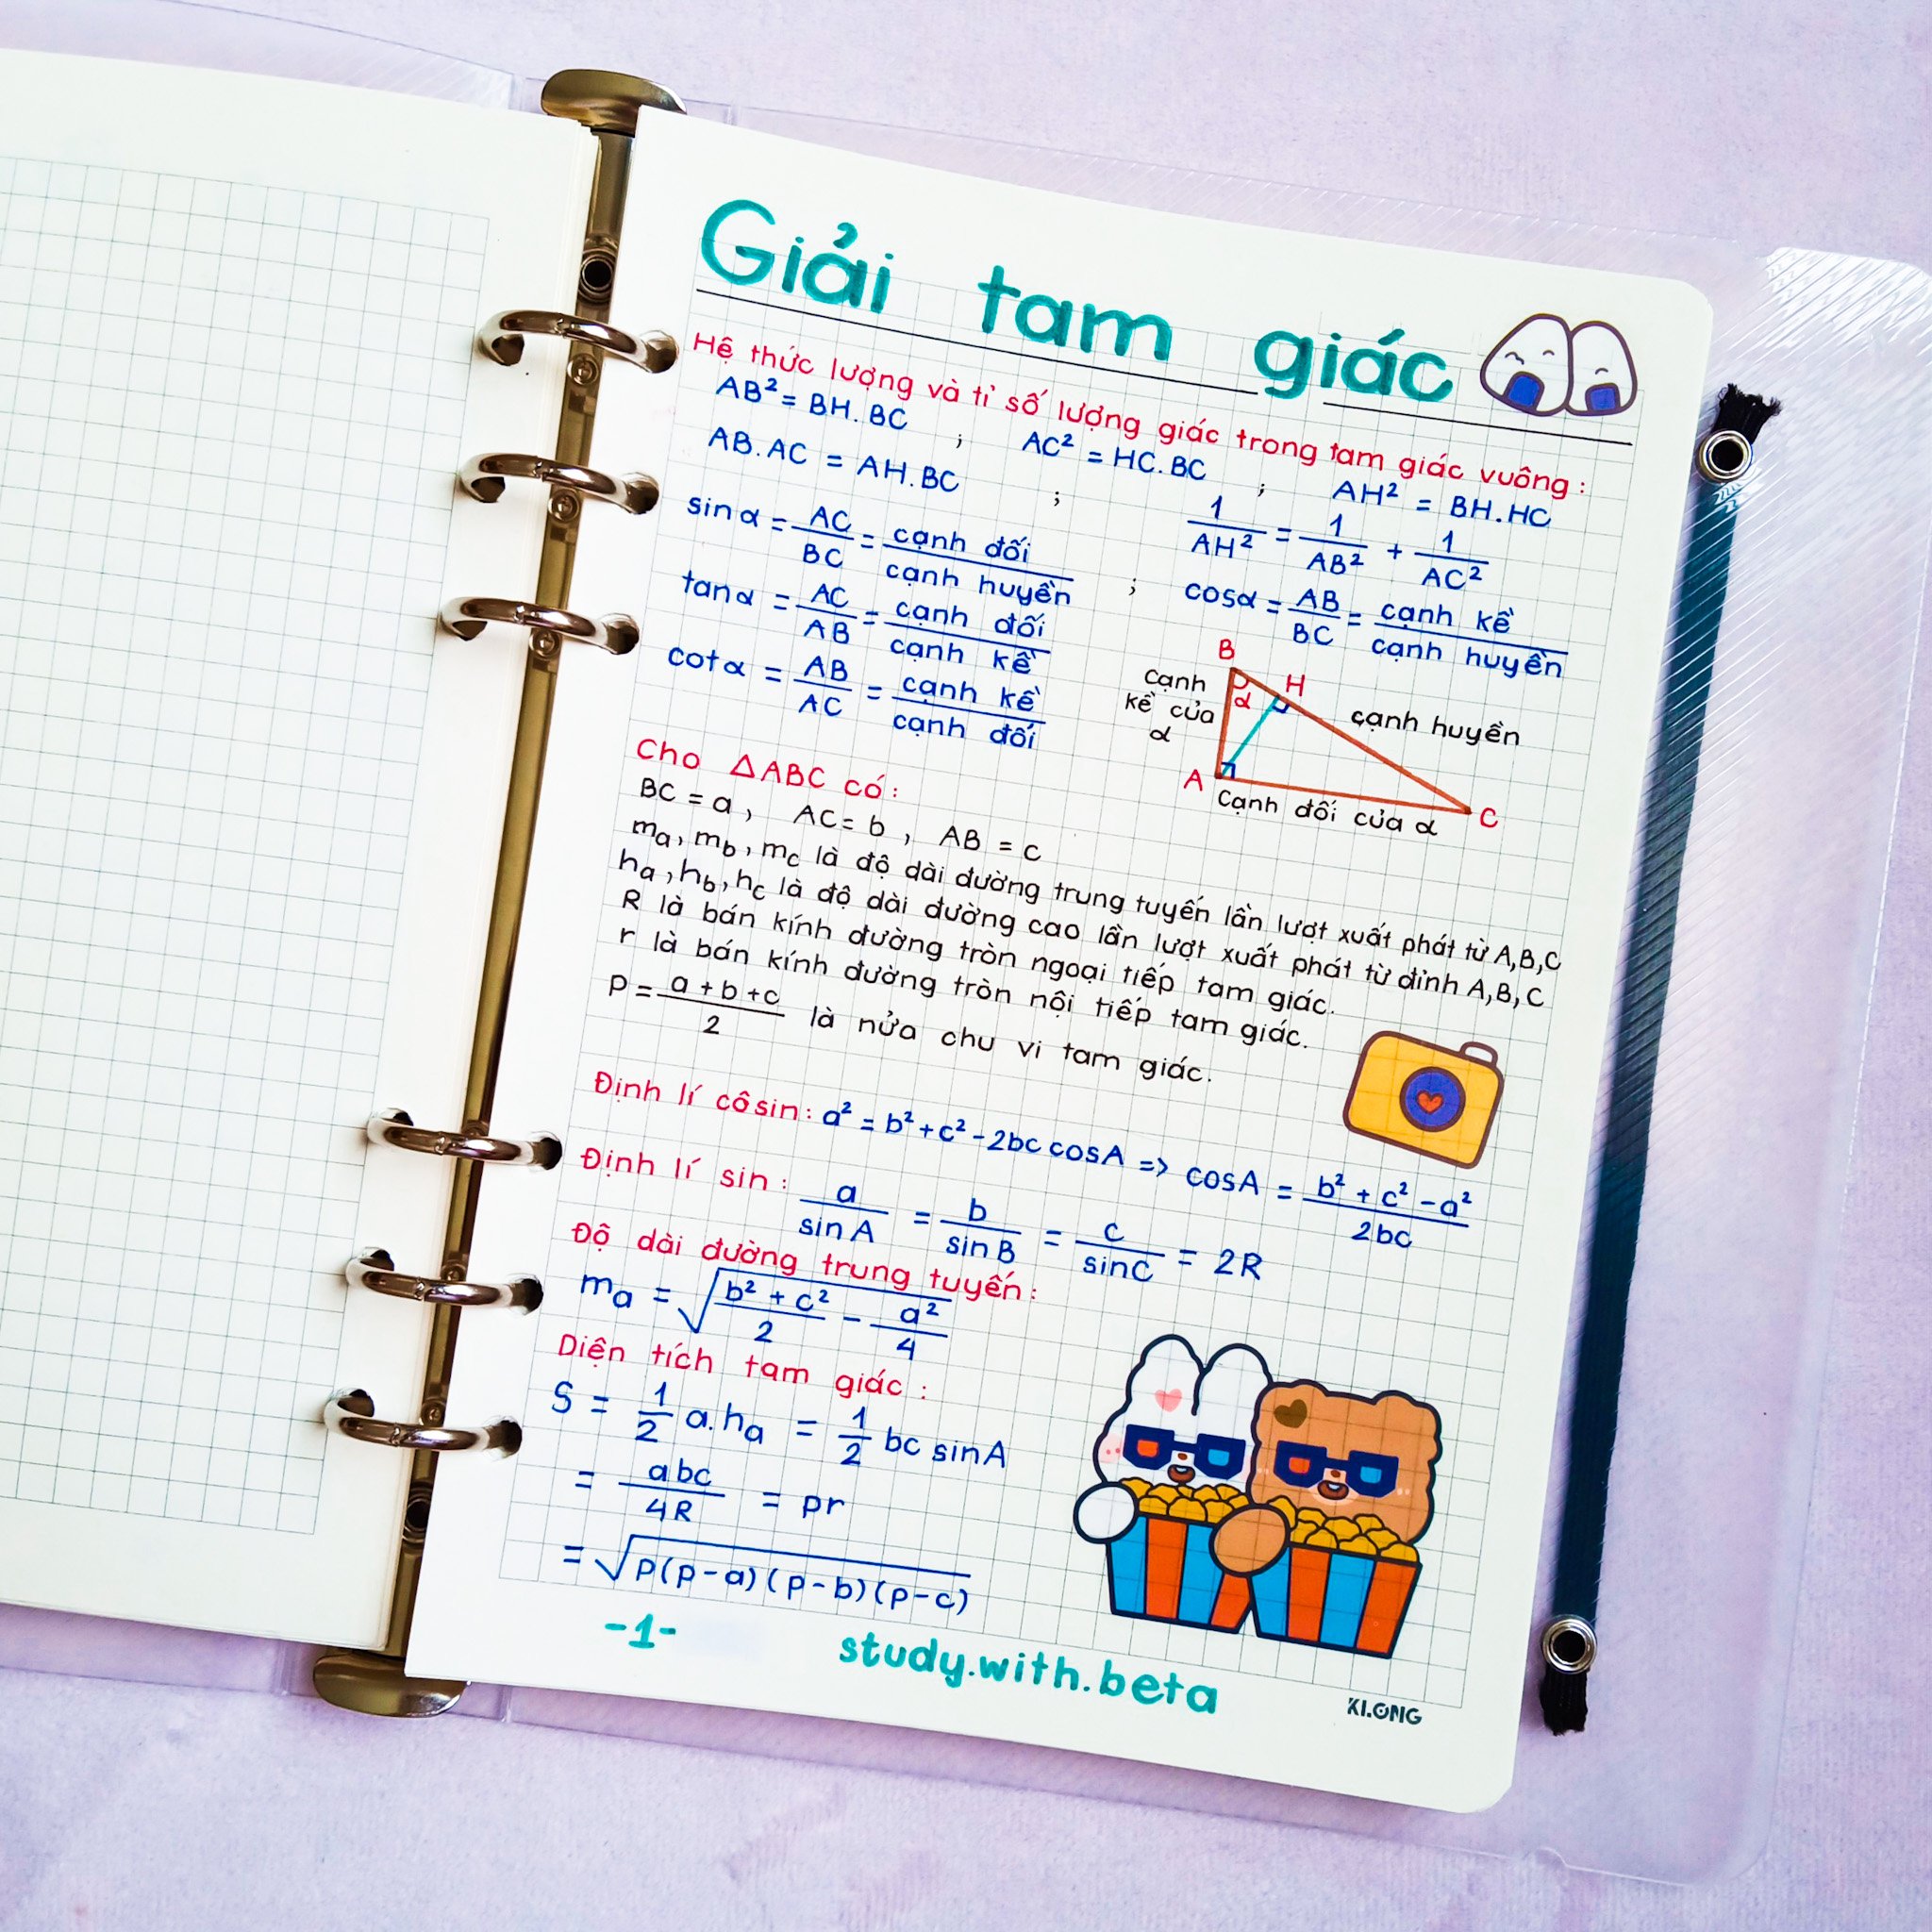 Giải tam giác
Hệ thức lượng và tỉ số lượng giác trong tam giác vuông:
AB² = BH.BC ; AC² = HC.BC ; AH² = BH.HC
AB.AC = AH.BC ; 1/AH² = 1/AB² + 1/AC²
sinα = AC/BC = cạnh đối/cạnh huyền ; cosα = AB/BC = cạnh kề/cạnh huyền
tanα = AC/AB = cạnh đối/cạnh kề
cotα = AB/AC = cạnh kề/cạnh đối
B
H
cạnh
kề của
α
α
cạnh huyền
A
C
Cạnh đối của α
Cho △ABC có:
BC = a, AC = b, AB = c
mₐ, m_b, m_c là độ dài đường trung tuyến lần lượt xuất phát từ A,B,C
hₐ, h_b, h_c là độ dài đường cao lần lượt xuất phát từ đỉnh A,B,C
R là bán kính đường tròn ngoại tiếp tam giác.
r là bán kính đường tròn nội tiếp tam giác.
P = (a+b+c)/2 là nửa chu vi tam giác.
Định lí côsin: a² = b² + c² - 2bc cosA => cosA = (b² + c² - a²)/2bc
Định lí sin: a/sinA = b/sinB = c/sinC = 2R
Độ dài đường trung tuyến:
mₐ = √((b² + c²)/2 - a²/4)
Diện tích tam giác:
S = 1/2 a.hₐ = 1/2 bc sinA
= abc/4R = pr
= √(p(p-a)(p-b)(p-c))
-1-
study.with.beta
KLONG